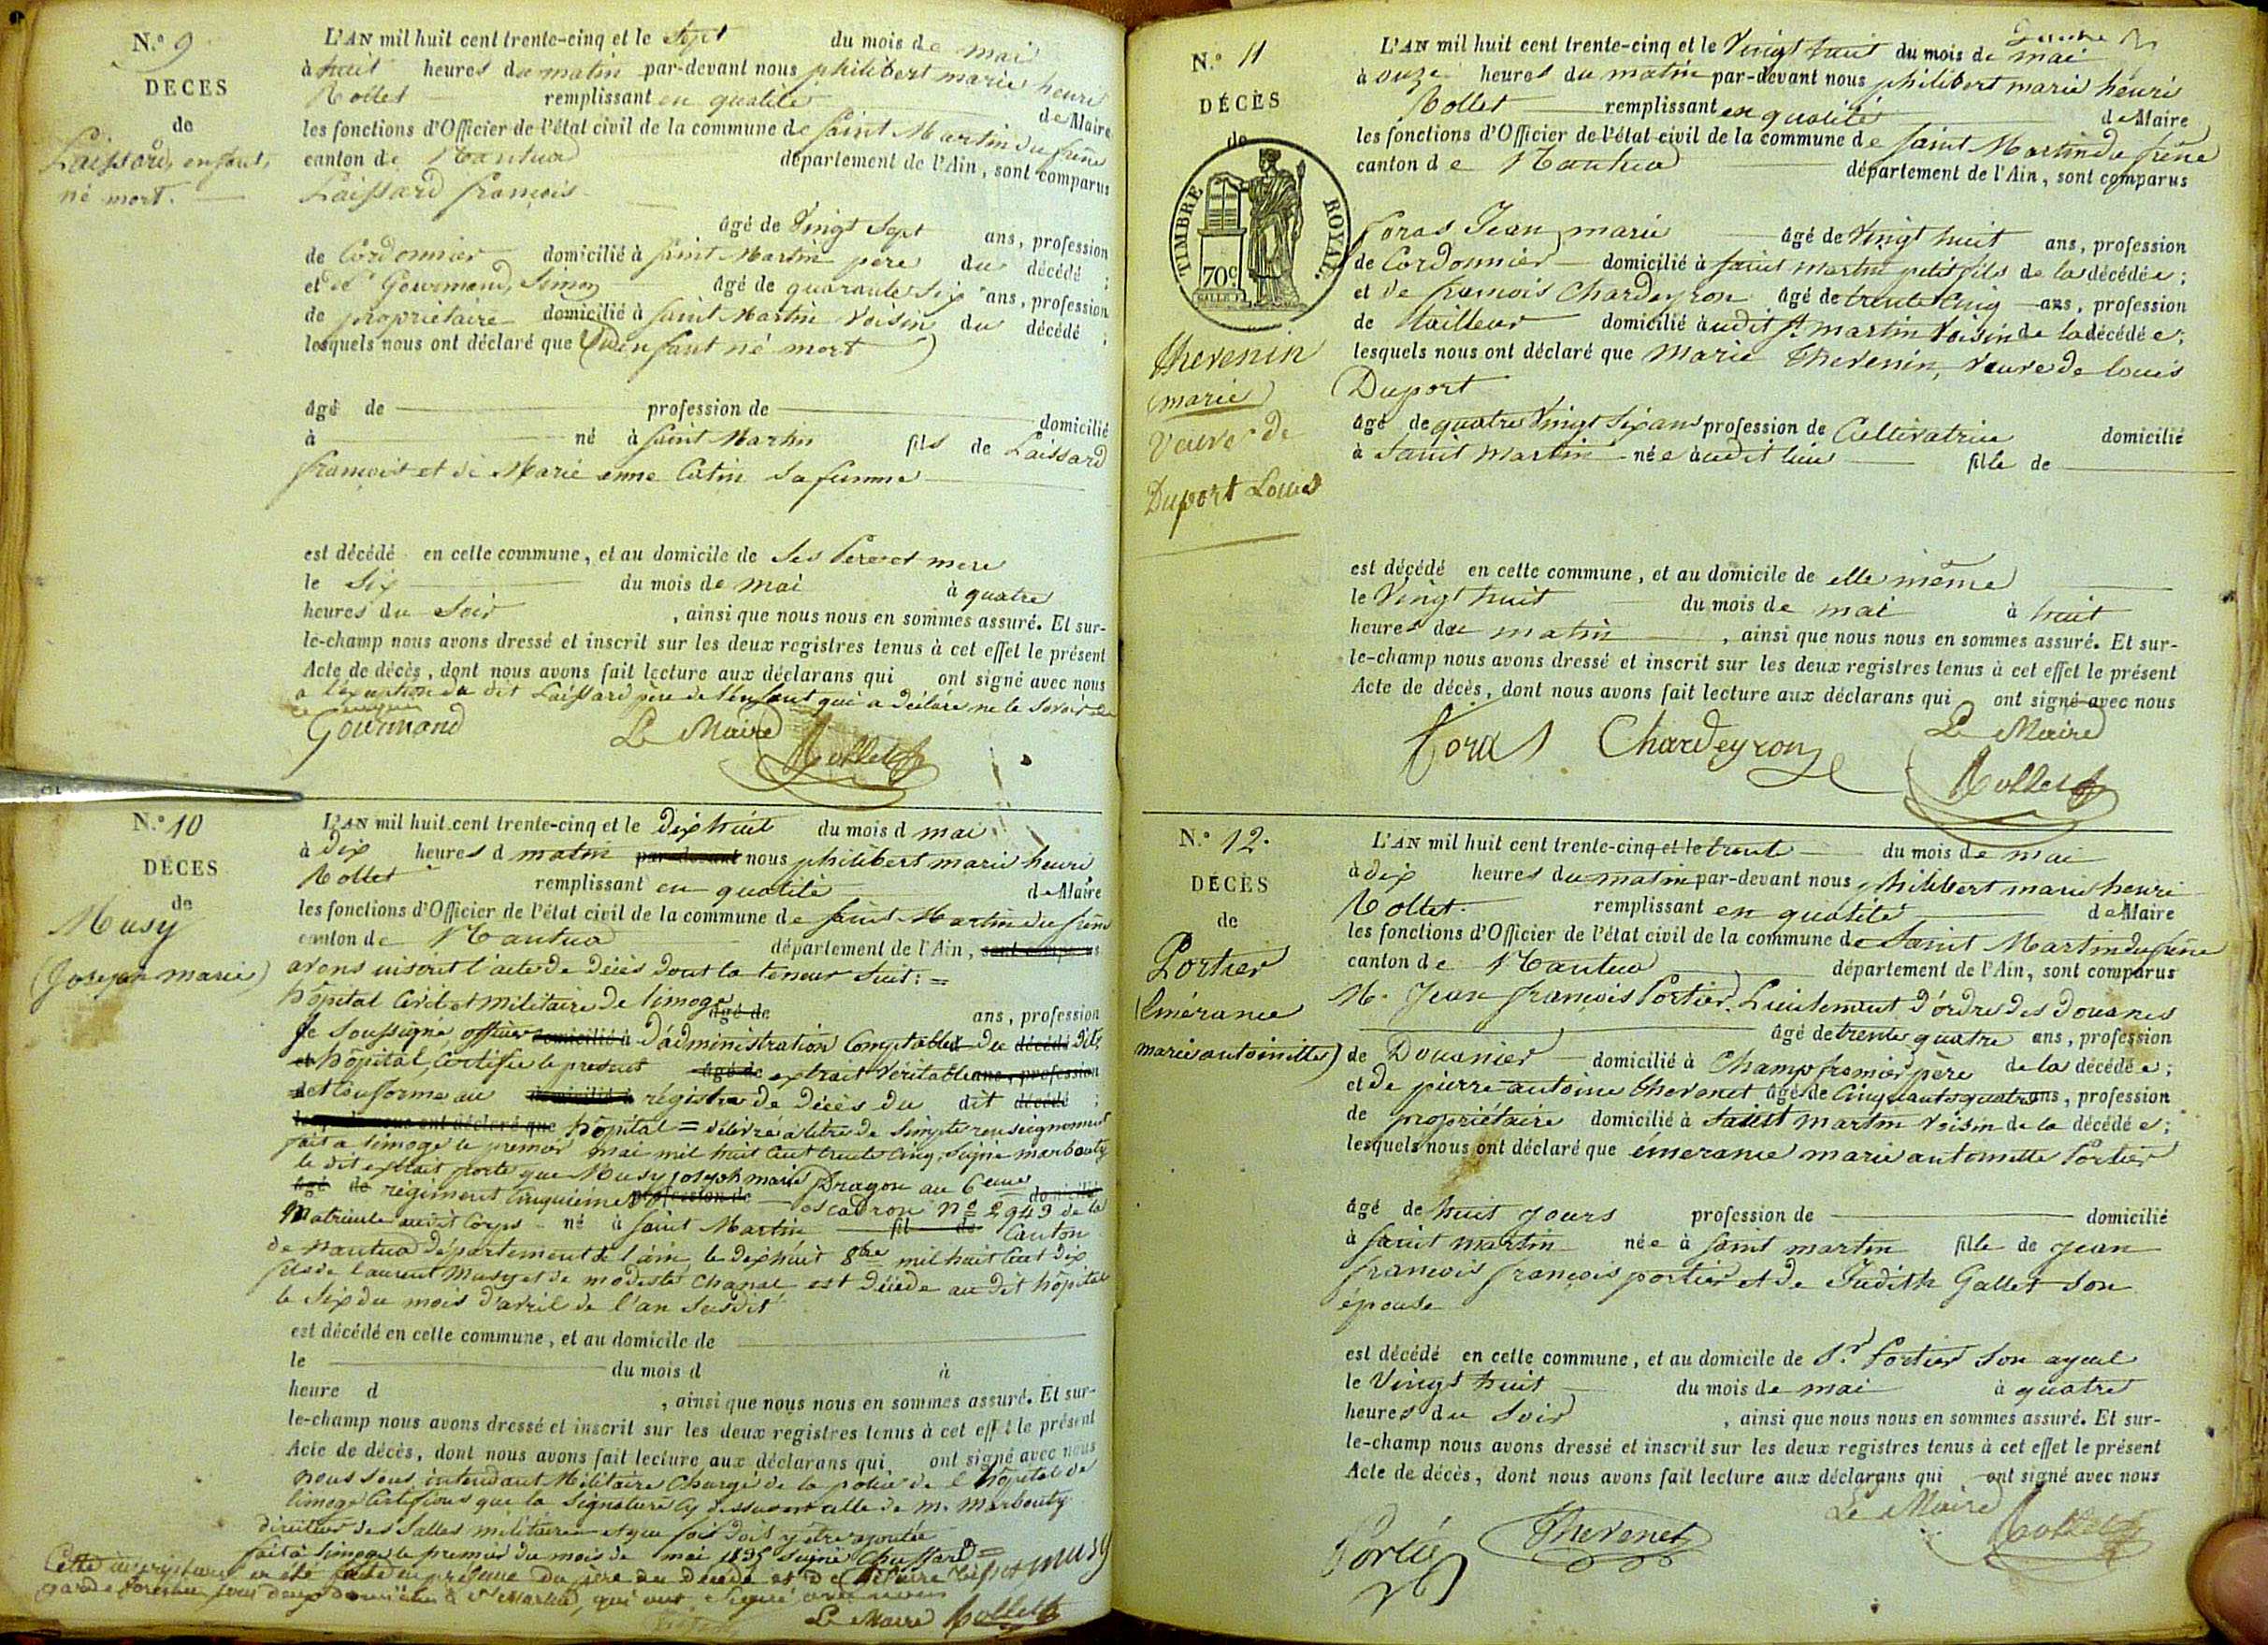 N.o 9
DECES
de
Laissard, enfant,
né mort.
L'AN mil huit cent trente-cinq et le sept du mois de mai
à huit heures du matin par-devant nous philibert marie henri
Rollet remplissant en qualité de Maire
les fonctions d'Officier de l'état civil de la commune de saint Martin du frêne
canton de Nantua département de l'Ain, sont comparus
Laissard françois
âgé de vingt sept ans, profession
de Cordonnier domicilié à saint Martin père du décédé ;
et d Gourmand Simon âgé de quarante six ans, profession
de propriétaire domicilié à saint Martin voisin du décédé ;
lesquels nous ont déclaré que enfant né mort
âgé de profession de domicilié
à né à saint Martin fils de Laissard
françois et de Marie anne Catin sa femme
est décédé en cette commune, et au domicile de ses Pere et mere
le six du mois de mai à quatre
heures du soir , ainsi que nous nous en sommes assuré. Et sur-
le-champ nous avons dressé et inscrit sur les deux registres tenus à cet effet le présent
Acte de décès, dont nous avons fait lecture aux déclarans qui ont signé avec nous
a l'exception du dit Laissard père de l'enfant qui a déclaré ne le savoir
Gourmand Le Maire Rollet
N.o 10
DÉCES
de
Musy
(Joseph marie)
L'AN mil huit cent trente-cinq et le dix huit du mois d mai
à dix heures d matin par-devant nous philibert marie henri
Rollet remplissant en qualité de Maire
les fonctions d'Officier de l'état civil de la commune de saint Martin du frêne
canton de Nantua département de l'Ain, sont comparus
avons inscrit l'acte de décès dont la teneur suit : =
hôpital Civil et Militaire de limoge
âgé de ans, profession
Je soussigné officier domicilié à d'administration Comptable du décédé dit
et hôpital, certifie le present âgé de extrait véritable ans, profession
de et conforme au domicilié à régistre de décès du dit décédé ;
lesquels nous ont déclaré que hôpital = délivré à titre de simple renseignement
fait a limoge le premier mai mil huit cent trente cinq, signé marbouty
le dit extrait porte que Musy joseph marie Dragon au 6eme
âgé de régiment cinquieme profession de escadron No 2949 de la domicilié
Matricule audit Corps né à saint Martin fil de Canton
de nantua département de l'ain, le dix huit 8bre mil huit cent dix
fils de laurent Musy et de modeste Chanal est décédé au dit hôpital
le six du mois d'avril de l'an susdit
est décédé en cette commune, et au domicile de
le du mois d à
heure d , ainsi que nous nous en sommes assuré. Et sur-
le-champ nous avons dressé et inscrit sur les deux registres tenus à cet effet le présent
Acte de décès, dont nous avons fait lecture aux déclarans qui ont signé avec nous
nous sous intendant Militaire chargé de la police de l'hôpital de
limoge Certifions que la signature cy dessus est celle de m. marbouty
directeur des salles militaires et que foi doit y être ajoutée
fait à limoge le premier du mois de mai 1835 signé Chaffard =
Cette inscription en été faite en présence du père du décédé et de
garde forestier tous deux domiciliés à St Martin, qui ont signé avec nous
Musy
Le Maire Rollet
N.o 11
DÉCÈS
de
TIMBRE ROYAL.
70c
thevenin
marie
veuve de
Duport Louis
L'AN mil huit cent trente-cinq et le vingt huit du mois de mai
à onze heures du matin par-devant nous philibert marie henri
Rollet remplissant en qualité de Maire
les fonctions d'Officier de l'état civil de la commune de saint Martin du frêne
canton de Nantua département de l'Ain, sont comparus
Foras Jean marie âgé de vingt huit ans, profession
de Cordonnier domicilié à saint martin petit fils de la décédée ;
et de francois Chardeyron âgé de trente cinq ans, profession
de tailleur domicilié audit st martin voisin de la décédée ;
lesquels nous ont déclaré que Marie thevenin, veuve de louis
Duport
âgé de quatre vingt six ans profession de Cultivatrice domicilié
à saint Martin née audit lieu fille de
est décédé en cette commune, et au domicile de elle même
le vingt huit du mois de mai à huit
heures du matin , ainsi que nous nous en sommes assuré. Et sur-
le-champ nous avons dressé et inscrit sur les deux registres tenus à cet effet le présent
Acte de décès, dont nous avons fait lecture aux déclarans qui ont signé avec nous
Foras Chardeyron Le Maire
Rollet
N.o 12.
DÉCÈS
de
Portier
émérance
marie antoinette)
L'AN mil huit cent trente-cinq et le trente du mois de mai
à dix heures du matin par-devant nous philibert marie henri
Rollet remplissant en qualité de Maire
les fonctions d'Officier de l'état civil de la commune de saint Martin du frêne
canton de Nantua département de l'Ain, sont comparus
M. Jean françois Portier, Lieutenant d'ordre des Douanes
âgé de trente quatre ans, profession
de Douanier domicilié à Champfromier père de la décédée ;
et de pierre antoine thevenet âgé de cinquante quatre ans, profession
de propriétaire domicilié à saint martin voisin de la décédée ;
lesquels nous ont déclaré que émerance marie antoinette Portier
âgé de huit jours profession de domicilié
à saint martin née à saint martin fille de jean
francois françois portier et de Judith Gallet son
épouse
est décédé en cette commune, et au domicile de Sr Portier son ayeul
le vingt huit du mois de mai à quatre
heures du soir , ainsi que nous nous en sommes assuré. Et sur-
le-champ nous avons dressé et inscrit sur les deux registres tenus à cet effet le présent
Acte de décès, dont nous avons fait lecture aux déclarans qui ont signé avec nous
Le Maire Rollet
Portié Thevenet